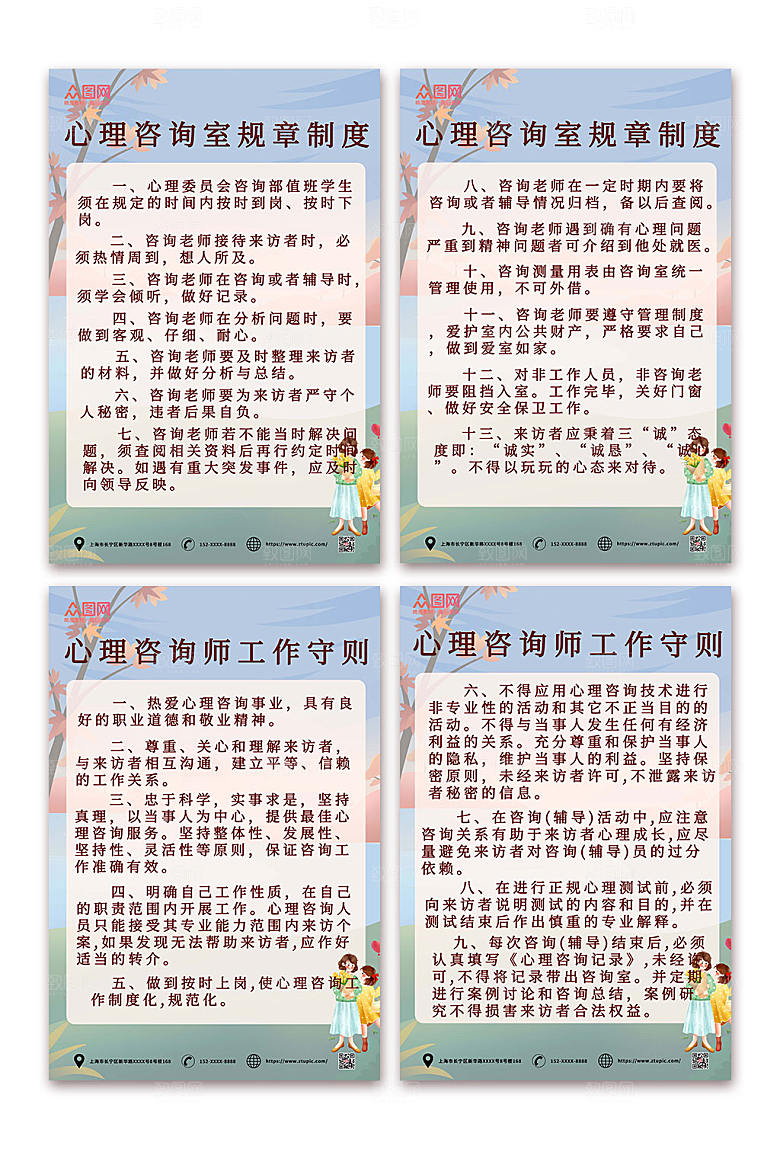 众图网
心理咨询室规章制度
一、心理委员会咨询部值班学生
须在规定的时间内按时到岗、按时下
岗。
二、咨询老师接待来访者时，必
须热情周到，想人所及。
三、咨询老师在咨询或者辅导时，
须学会倾听，做好记录。
四、咨询老师在分析问题时，要
做到客观、仔细、耐心。
五、咨询老师要及时整理来访者
的材料，并做好分析与总结。
六、咨询老师要为来访者严守个
人秘密，违者后果自负。
七、咨询老师若不能当时解决问
题，须查阅相关资料后再行约定时间
解决。如遇有重大突发事件，应及时
向领导反映。
上海市长宁区新华路XXXX号8号楼168
152-XXXX-8888
https://www.ztupic.com/
众图网
心理咨询室规章制度
八、咨询老师在一定时期内要将
咨询或者辅导情况归档，备以后查阅。
九、咨询老师遇到确有心理问题
严重到精神问题者可介绍到他处就医。
十、咨询测量用表由咨询室统一
管理使用，不可外借。
十一、咨询老师要遵守管理制度
，爱护室内公共财产，严格要求自己
，做到爱室如家。
十二、对非工作人员，非咨询老
师要阻挡入室。工作完毕，关好门窗
、做好安全保卫工作。
十三、来访者应秉着三“诚”态
度即：“诚实”、“诚恳”、“诚心
”。不得以玩玩的心态来对待。
上海市长宁区新华路XXXX号8号楼168
152-XXXX-8888
https://www.ztupic.com/
众图网
心理咨询师工作守则
一、热爱心理咨询事业，具有良
好的职业道德和敬业精神。
二、尊重、关心和理解来访者，
与来访者相互沟通，建立平等、信赖
的工作关系。
三、忠于科学，实事求是，坚持
真理，以当事人为中心，提供最佳心
理咨询服务。坚持整体性、发展性、
坚持性、灵活性等原则，保证咨询工
作准确有效。
四、明确自己工作性质，在自己
的职责范围内开展工作。心理咨询人
员只能接受其专业能力范围内来访个
案,如果发现无法帮助来访者,应作好
适当的转介。
五、做到按时上岗,使心理咨询工
作制度化,规范化。
上海市长宁区新华路XXXX号8号楼168
152-XXXX-8888
https://www.ztupic.com/
众图网
心理咨询师工作守则
六、不得应用心理咨询技术进行
非专业性的活动和其它不正当目的的
活动。不得与当事人发生任何有经济
利益的关系。充分尊重和保护当事人
的隐私，维护当事人的利益。坚持保
密原则，未经来访者许可,不泄露来访
者秘密的信息。
七、在咨询(辅导)活动中,应注意
咨询关系有助于来访者心理成长,应尽
量避免来访者对咨询(辅导)员的过分
依赖。
八、在进行正规心理测试前,必须
向来访者说明测试的内容和目的,并在
测试结束后作出慎重的专业解释。
九、每次咨询(辅导)结束后,必须
认真填写《心理咨询记录》,未经许
可,不得将记录带出咨询室。并定期
进行案例讨论和咨询总结，案例研
究不得损害来访者合法权益。
上海市长宁区新华路XXXX号8号楼168
152-XXXX-8888
https://www.ztupic.com/